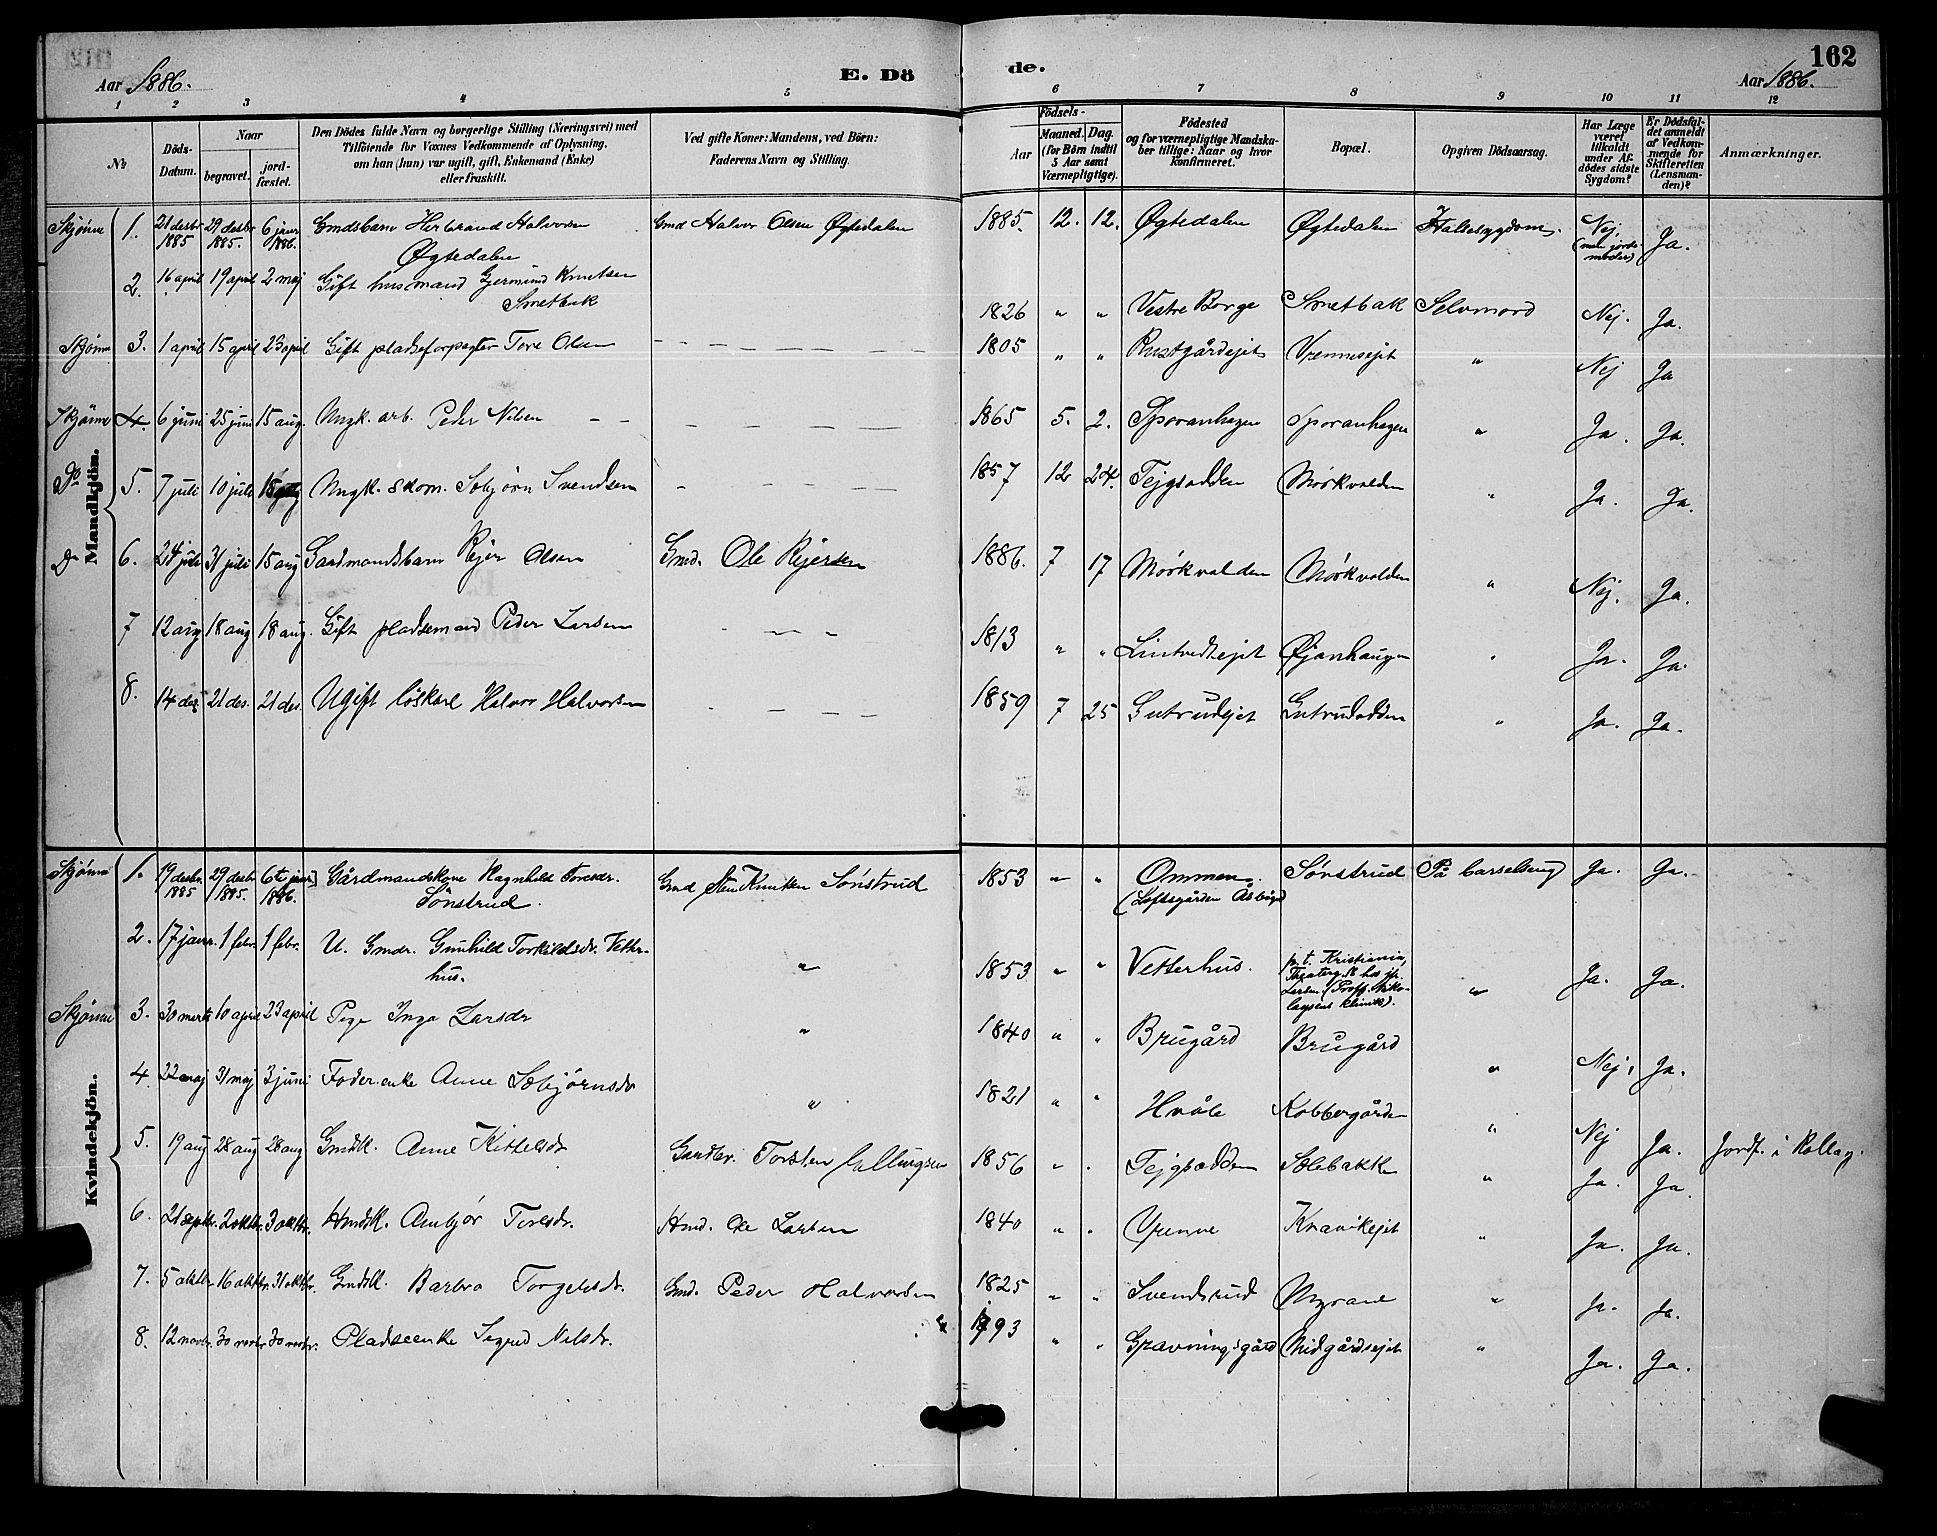 162
Aar 1886.
E. Dö
de.
Aar 1886.
1 2 3 4 5 6 7 8 9 10 11 12
№
Döds-Datum.
Naar
begravet.
jord-fæstet.
Den Dödes fulde Navn og borgerlige Stilling (Næringsvei) med
Tilföiende for Voxnes Vedkommende af Oplysning,
om han (hun) var ugift, gift, Enkemand (Enke)
eller fraskilt.
Ved gifte Koner: Mandens, ved Börn:
Faderens Navn og Stilling.
Födsels-
Aar
Maaned. Dag.
(for Börn indtil
5 Aar samt
Værnepligtige).
Födested
og for værnepligtige Mandska-
ber tillige: Naar og hvor
konfirmeret.
Bopæl.
Opgiven Dödsaarsag.
Har Læge
været
tilkaldt
under Af-
dödes sidste
Sygdom?
Er Dödsfal-
det anmeldt
af Vedkom-
mende for
Skifteretten
(Lensman-
den)?
Anmærkninger.
Mandkjön.
Skjønne 1. 21 desbr 1885 29 desbr 1885. 6 janr 1886. Gmdsbarn Herbrand Halvorsen Øgtedalen Gmd Halvor Olsen Øgtedalen 1885. 12. 12. Øgtedalen Øgtedalen Halssygdom. Nej. (men jordemoder) Ja.
2. 16 april 19 april 2 maj Gift husmand Germund Knutsen Smetbak 1826 " " Vestre Borge Smetbak Selvmord Nej. Ja.
Skjønne 3. 1 april 15 april 23 april Gift pladseforpagter Tore Olsen 1805 " " Rustgårdejet Vrennesejet " Nej Ja
Skjønne 4. 6 juni 25 juni 15 aug. Ungk. arb. Peder Nilsen 1865 5. 2. Sporanhagen Sporanhagen " Ja. Ja.
Do 5. 7 juli 10 juli 15 aug Ungk. skom. Sebjørn Svendsen 1857 12 24. Tejgsodden Mørkvolden " Ja. Ja.
Do 6. 24 juli 31 juli 15 aug Gardmandsbarn Rejer Olsen Gmd. Ole Rejersen 1886. 7 17 Mørkvolden Mørkvolden " Nej. Ja.
7 12 aug 18 aug 18 aug. Gift pladsemand Peder Larsen 1813 " " Lintvedtejet Øjanhaugen " Ja. Ja.
8. 14 des 21 des. 21 des. Ugift løskarl Halvor Halvorsen 1859 7 25 Gutrudejet Gutrudodden " Ja. Ja.
Kvindekjön.
Skjønne 1. 19 desbr. 1885 29 desbr 1885. 6te janr 1886. Gårdmandskone Ragnhild Toresdr. Sønstrud. Gmd Sten Knutsen Sønstrud 1853 " " Ommen. (Loftsgården Åsbøgd Sønstrud På barselseng Ja. Ja.
2. 17 janr. 1 febr. 1 febr. U. Gmdr. Gunhild Torkildsdr. Vetter-
hus. " 1853 " " Vetterhus. p. t. Kristiania, Theaterg. 16 hos jfr. Larsen (Proff. Niko-
laysens klinik). " Ja. Ja.
Skjønne 3. 30 marts 10 april 23 april Pige Inga Larsdr " 1840 " " Brugård Brugård " Nej. Ja.
4. 22 maj 31 maj 3 juni Foder enke Anne Sebjørnsdr " 1821 " " Hvåle Kobbergården " Nej Ja. Jordf. i Rollag.
5. 19 aug 28 aug 28 aug Gmdk. Anne Kittelsdr Gardbr. Torsten Ellingsen 1856 " " Tejgsodden Solebakk " Ja. Ja.
6. 21 septbr. 2 oktbr. 3 oktbr. Hmdsk. Ambjør Toresdr. Hmd. Ole Larsen 1840 " " Vrenne Kravikejet " Ja. Ja.
7. 5 oktbr 16 oktbr. 31 oktbr. Gmdsk. Barbro Torgelsdr. Gmd. Peder Halvorsen 1825 " " Svendsrud Myrane " Ja. Ja.
8. 12 novbr. 30 novbr 30 novbr. Pladseenke Sigrid Nilsdr. " 1793 " " Gravningsgård Midgårdsejet " Ja. Ja.